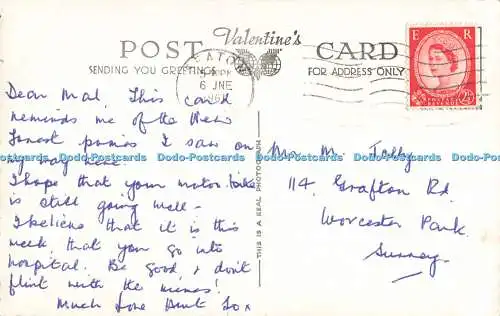 POST Valentine's CARD
SENDING YOU GREETINGS FOR ADDRESS ONLY
E R
6 JNE
Dear Mal, This card
reminds me of the New
Forest ponies I saw on
my way here.
I hope that your motor bike
is still going well -
I believe that it is this
week that you go into
hospital. Be good & don't
flirt with the nurses!
Much love Aunt Lo x
THIS IS A REAL PHOTOGRAPH
Mr. M. Jolly
114 Grafton Rd.
Worcester Park.
Surrey.
Dodo-Postcards Dodo-Postcards Dodo-Postcards Dodo-Postcards Dodo-Postcards